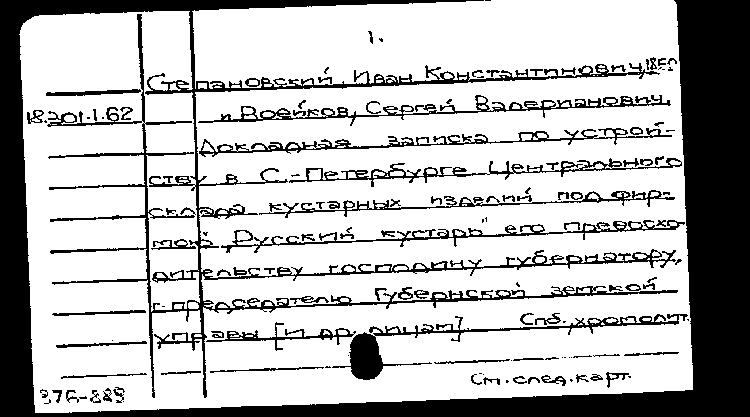 1.
Степановский, Иван Константинович, 1850-
18.201.1.62 и Воейков, Сергей Валерианович.
Докладная записка по устрой-
ству в С.-Петербурге Центрального
склада кустарных изделий под фир-
мою "Русский кустарь" его превосхо-
дительству господину губернатору,
г. председателю Губернской земской
управы [и др. лицам] Спб., хромолит.
См. след. карт.
376-889